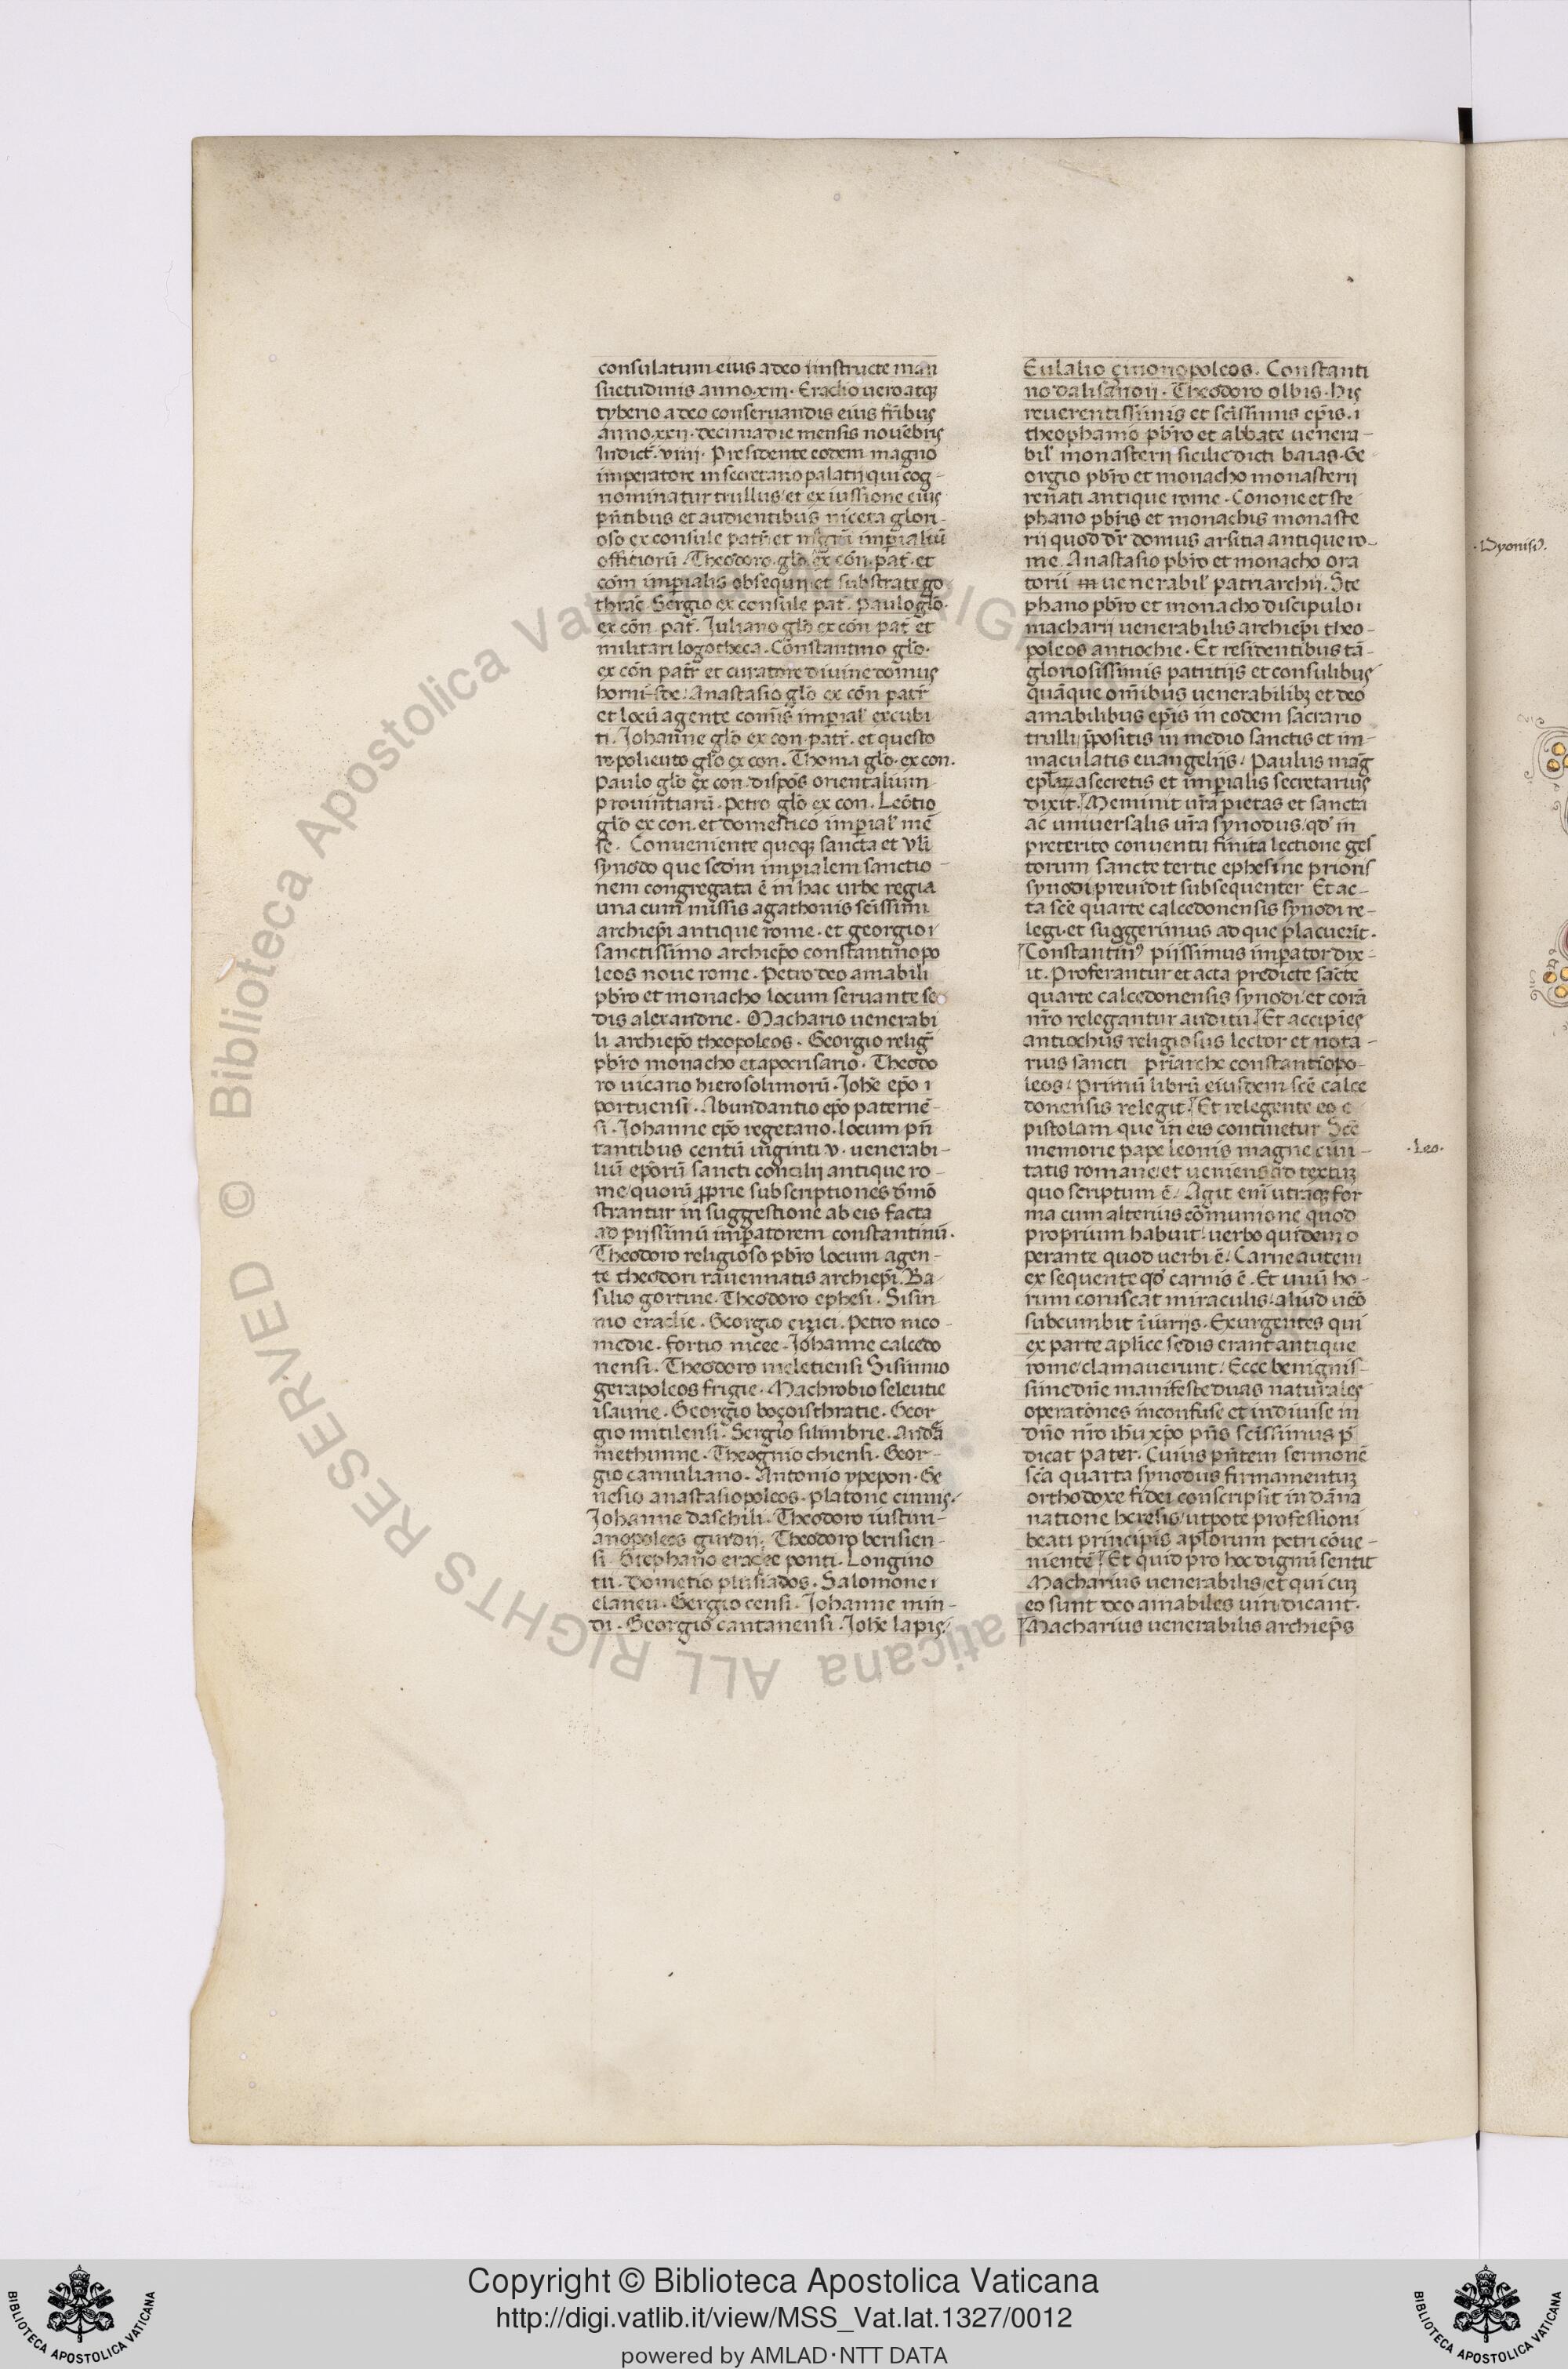 consulatum eius a deo iinstructe man
suetudinis anno .xiii. Eraclio uero atq̃
tyberio a deo conseruandis eius fr̃ibus
anno .xxij. decima die mensis nouẽbris
Indict̃. viiij. Presidente eodem magno
imperatore in secretario palatij qui cog-
nominatur trullus et ex iussione eius
pñtibus et audientibus niceta glori-
oso ex consule patr̃ et mg̃rũ imꝑialiũ
officiorũ. Theodoro. glo. ex cõn. pat̃. et
com imꝑialis obsequij et substratego
thrač. Sergio ex consule pat̃. Paulo glo.
ex cõn pat̃. Juliano glo ex cõn pat̃ et
militari logotheca. Cõnstantino glo.
ex cõn patr̃ et curatore diuine domus
hornisde. Anastasio glo ex cõn patr̃
et locũ agente comis imꝑial excubi
ti. Johanne glo ex con patr̃. et questo
re poliento glo ex con. Thoma glo. ex con.
Paulo glo ex con. dispos̃ orientalium
prouintiarũ. Petro glo ex con. Leõtio
glo ex con. et domestico imꝑial mẽ
se. Conueniente quoq̃ sancta et vl̃i
synodo que sed̃m imꝑialem sanctio-
nem congregata ẽ in hac urbe regia
una cum missis agathonis scĩssimi
archiep̃i antique rome. et georgio i
sanctissimo archiep̃o constantinopo
leos noue rome. Petro deo amabili
pb̃ro et monacho locum seruante se
dis alexandrie. Machario uenerabi
li archiep̃o theopoleos. Georgio relig̃
pb̃ro monacho et apocrisario. Theodo
ro uicario hierosolimorũ. Joh̃e ep̃o i
portuensi. Abundantio ep̃o paternẽ-
si. Johanne ep̃o regetano. locum pñ
tantibus centũ uiginti v. uenerabi-
liũ ep̃orũ sancti concilij antique ro-
me quorũ ꝓprie subscriptiones demõ
strantur in suggestione ab eis facta
ad pijssimũ imꝑatorem constantinũ.
Theodoro religioso pb̃ro locum agen-
te theodori rauennatis archiep̃i. Ba-
silio gortine. Theodoro ephesi. Sisin
nio eraclie. Georgio cizici. Petro nico-
medie. fortio nicee. Johanne calcedo
nensi. Theodoro meletiensi Sisinnio
gerapoleos frigie. Machrobio seleucie
isaurie. Georgio boçoisthratie. Geor
gio mitilensi. Sergio silimbrie. Andã
methinne. Theognio chiensi. Geor-
gio camuliano. Antonio ypepon. Ge
nesio anastasiopoleos. Platone cinnis.
Johanne daschili. Theodoro iustini-
anopoleos gurdij. Theodoro berisien-
si Stephano eraclee ponti. Longino
tii. Dometio plusiados. Salomone i
claneu. Sergio censi. Johanne min-
di. Georgio cantanensi. Joh̃e lapis.
Eulalio çinonopoleos. Constanti
no dalisanoii. Theodoro olbis. his
reuerentissimis et scĩssimis ep̃is. i
theophanio pb̃ro et abbate uenera-
bil monasterij sicilie dicti baias. Ge
orgio pb̃ro et monacho monasterij
renati antique rome. Conone et ste
phano pb̃ris et monachis monaste
rij quod dr̃ domus arsitia antique ro-
me. Anastasio pb̃ro et monacho ora
torii uenerabil patriarchij. Ste
phano pb̃ro et monacho discipulo i
macharij uenerabilis archiep̃i theo-
poleos antiochie. Et residentibus tã-
gloriosissimis patritijs et consulibus
quãque om̃ibus uenerabilibꝫ et deo
amabilibus ep̃is in eodem sacrario
trulli ꝓpositis in medio sanctis et im-
maculatis euangelijs. Paulus mag̃
epl̃aꝝ a secretis et imꝑialis secretarius
dixit. Meminit ur̃a pietas et sancta
ac uniuersalis ur̃a synodus qđ in
preterito conuentu finita lectione ges
torum sancte tertie ephesine prioris
synodi preuidit subsequenter Et ac-
ta scẽ quarte calcedonensis synodi re-
legi. et suggerimus ad que placuerit.
Constantin᾽ pijssimus imꝑator dix-
it. Proferantur et acta predicte sãcte
quarte calcedonensis synodi et corã
nr̃o relegantur auditu. Et accipiẽs
antiochus religiosus lector et nota-
rius sancti pr̃iarche constantĩopo-
leos. Primũ librũ eiusdem scẽ calce
donensis relegit. Et relegente eo e
pistolam que in eis continetur Scẽ
memorie pape leonis magne ciui-
tatis romane et ueniens ad textuꝫ
quo scriptum ẽ. Agit eni᷑ utraq̃ for
ma cum alterius cõmunione quod
proprium habuit. uerbo quidem o
perante quod uerbi ẽ. Carne autem
exsequente qđ carnis ẽ. Et unũ ho-
rum coruscat miraculis. aliud ueõ
subcumbit iniurijs. Exurgentes qui
ex parte apl̃ice sedis erant antique
rome clamauerunt. Ecce benignis-
sime dñe manifeste duas naturales
operatiões inconfuse et indiuise in
dño nr̃o ih̃u xp̃o pñs scĩssimus p̃
dicat pater. Cuius pñtem sermonẽ
scã quarta synodus firmamentuꝫ
orthodoxe fidei conscripsit in dãna
natione heresis utpote professioni
beati principis apl̃orum petri cõue-
nientẽ. Et quid pro hoc dignũ sentit
Macharius uenerabilis et qui cuꝫ
eo sunt deo amabiles uiri dicant.
Macharius uenerabilis archiep̃s
.Dyonisi᾽.
.Leo.
© Biblioteca Apostolica Vaticana ALL RIGHTS RESERVED
Copyright © Biblioteca Apostolica Vaticana
http://digi.vatlib.it/view/MSS_Vat.lat.1327/0012
powered by AMLAD·NTT DATA
BIBLIOTECA APOSTOLICA VATICANA
BIBLIOTECA APOSTOLICA VATICANA